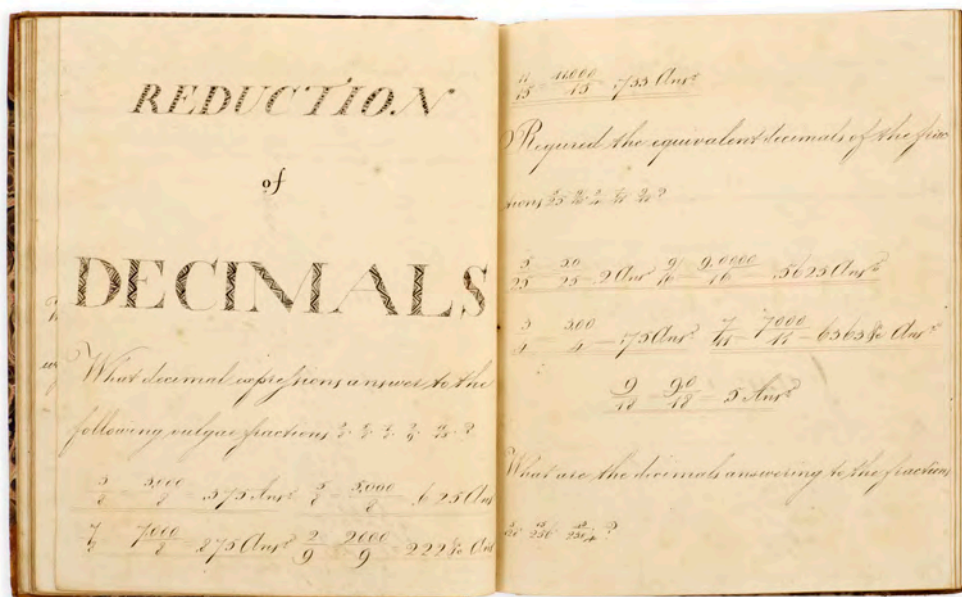 REDUCTION
of
DECIMALS
What decimal expressions answer to the
following vulgar fractions
3/8 = 3,000/8 = .375 Ans. 5/8 = 5,000/8 = .625 Ans
7/8 = 7,000/8 = .875 Ans. 2/9 = 2000/9 = 222 &c Ans
11/15 = 11.000/15 .733 Ans.
Required the equivalent decimals of the frac
tions 5/25 9/16 3/4 7/11 9/18?
5/25 = 50/25 = .2 Ans. 9/16 9,0000/16 .5625 Ans.
3/4 = 300/4 = .75 Ans. 7/11 = 7000/11 = 6363 &c Ans.
9/18 = 90/18 = 5 Ans.
What are the decimals answering to the fractions